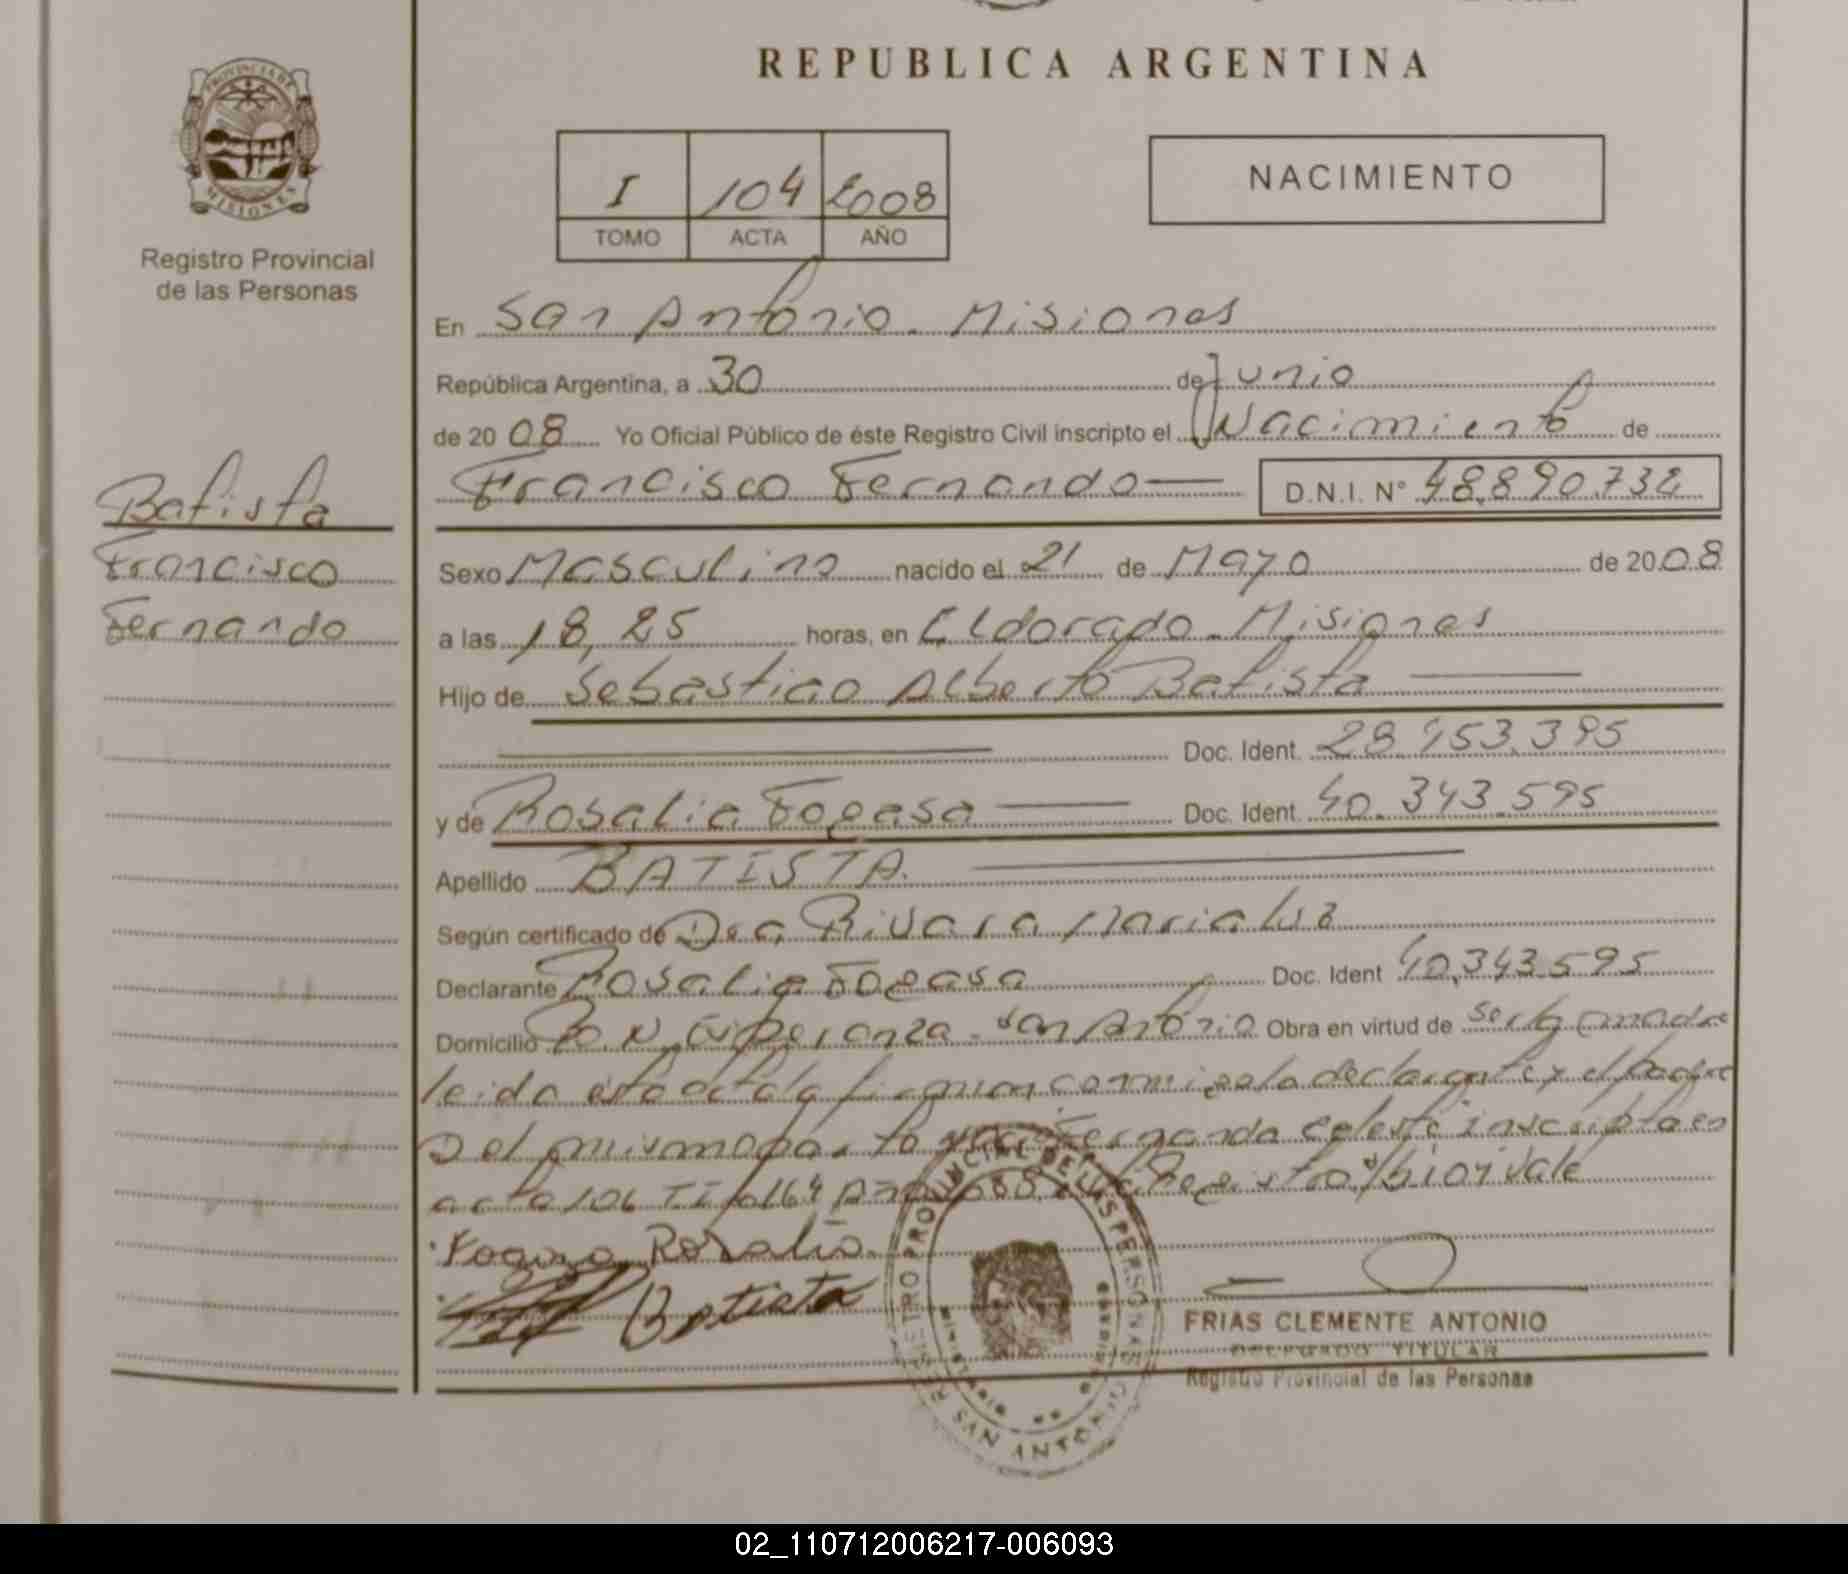 REPUBLICA ARGENTINA
PROVINCIA DE MISIONES
Registro Provincial
de las Personas
I 104 2008
TOMO ACTA AÑO
NACIMIENTO
En San Antonio. Misiones
República Argentina, a 30 de Junio
de 20 08 Yo Oficial Público de éste Registro Civil inscripto el Nacimiento de
Francisco Fernando D.N.I. N° 48.890.732
Batista
Francisco
Fernando
Sexo Masculino nacido el 21 de Mayo de 2008
a las 18,25 horas, en Eldorado. Misiones
Hijo de Sebastiao Alberto Batista
Doc. Ident. 28.453.395
y de Rosalia Fogasa Doc. Ident. 40.343.595
Apellido BATISTA.
Según certificado de Dra Rivara Maria
Declarante Rosalia Fogasa Doc. Ident 40.343.595
Domicilio Esperanza - San Antonio Obra en virtud de ser la madre
leida esta acta la firman conmigo la declarante y el padre
Del mismo parto Fernanda Celeste inscripta en
acta 106 Registro vale
Fogasa Rosalia
Batista
REGISTRO PROVINCIAL DE LAS PERSONAS
MINISTERIO DE GOBIERNO
SAN ANTONIO
FRIAS CLEMENTE ANTONIO
DELEGADO TITULAR
Registro Provincial de las Personas
02_110712006217-006093